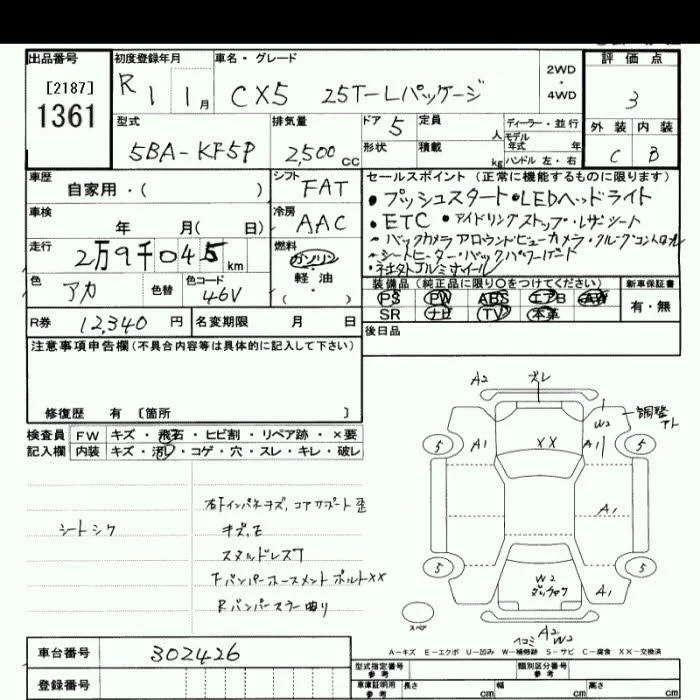 出品番号
[2187]
1361
初度登録年月
R 1 1月
車名・グレード
CX5 25T-Lパッケージ
2WD
・
4WD
評価点
3
外装 内装
C B
型式
5BA-KF5P
排気量
2,500cc
ドア 5
定員 人
形状
積載 kg
ディーラー・並行
モデル
年式 年
ハンドル 左・右
車歴
自家用・( )
シフト
FAT
車検
年 月( 日)
冷房
AAC
走行
2万9千045km
燃料
ガソリン
軽油
( )
色
アカ
色替
色コード
46V
R券 12,340円
名変期限 月 日
セールスポイント (正常に機能するものに限ります)
・プッシュスタート・LEDヘッドライト
・ETC ・アイドリングストップ・レザーシート
・バックカメラ アラウンドビューカメラ・クルーズコントロール
・シートヒーター・バックパワーゲート
・社外アルミホイール
装備品 (純正品に限り○をつけてください)
PS PW ABS エアB AW
SR ナビ TV 本革
新車保証書
有・無
後日品
注意事項申告欄(不具合内容等は具体的に記入して下さい)
修復歴 有 〔箇所 〕
検査員
記入欄
FW キズ・飛石・ヒビ割・リペア跡・×要
内装 キズ・汚レ・コゲ・穴・スレ・キレ・破レ
シートシワ
右下インパネキズ、コアサポート歪
キズ、モ
スタッドレス7
Fバンパーホースメント ボルトXX
Rバンパーステー曲り
A2 ズレ
W2
調整
5 A1 XX A1 5
A1
5 W2 A1 5
スペア
A2
W2
A-キズ E-エクボ U-凹み W-補修跡 S-サビ C-腐食 XX-交換済
車台番号 302426
登録番号
型式指定番号
参考
類別区分番号
参考
車庫証明用
参考
長さ cm 幅 cm 高さ cm